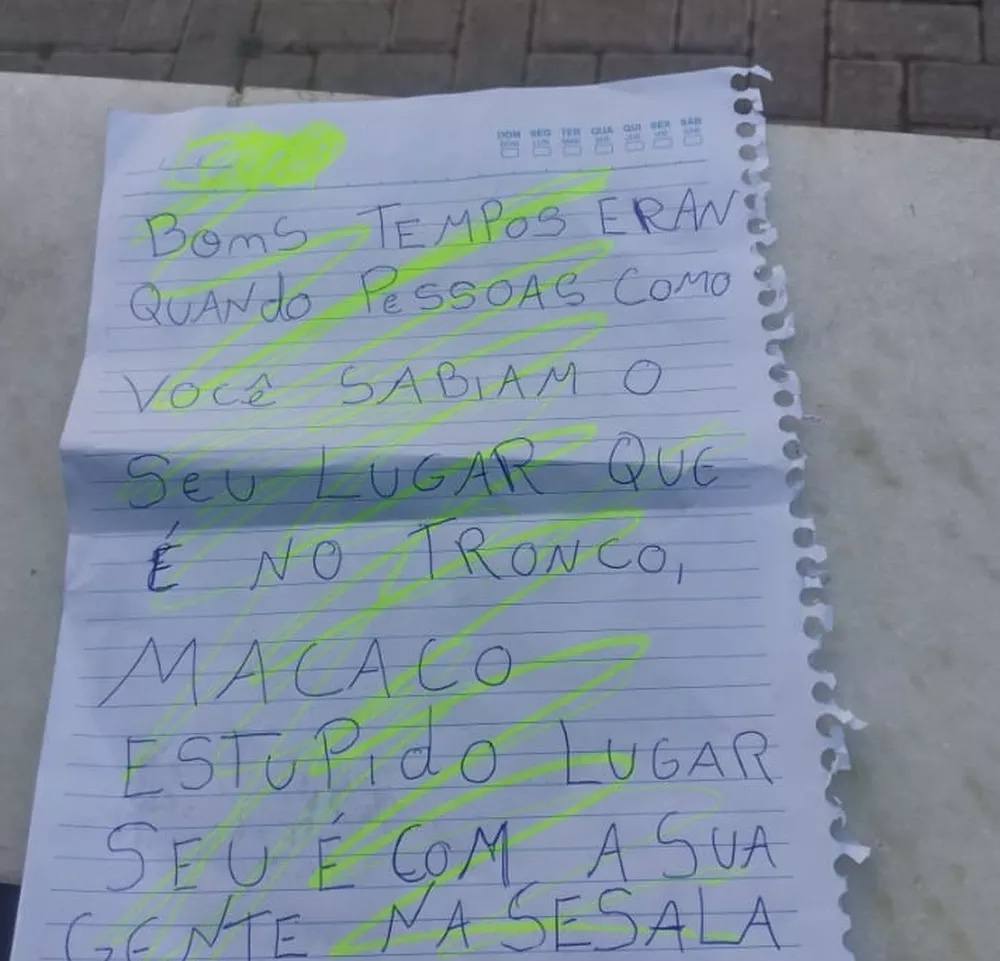 DOM SEG TER QUA QUI SEX SAB
BOMS TEMPOS ERAN
QUANDO PESSOAS COMO
VOCÊ SABIAM O
SEU LUGAR QUE
É NO TRONCO,
MACACO
ESTUPIDO LUGAR
SEU É COM A SUA
GENTE NA SESALA